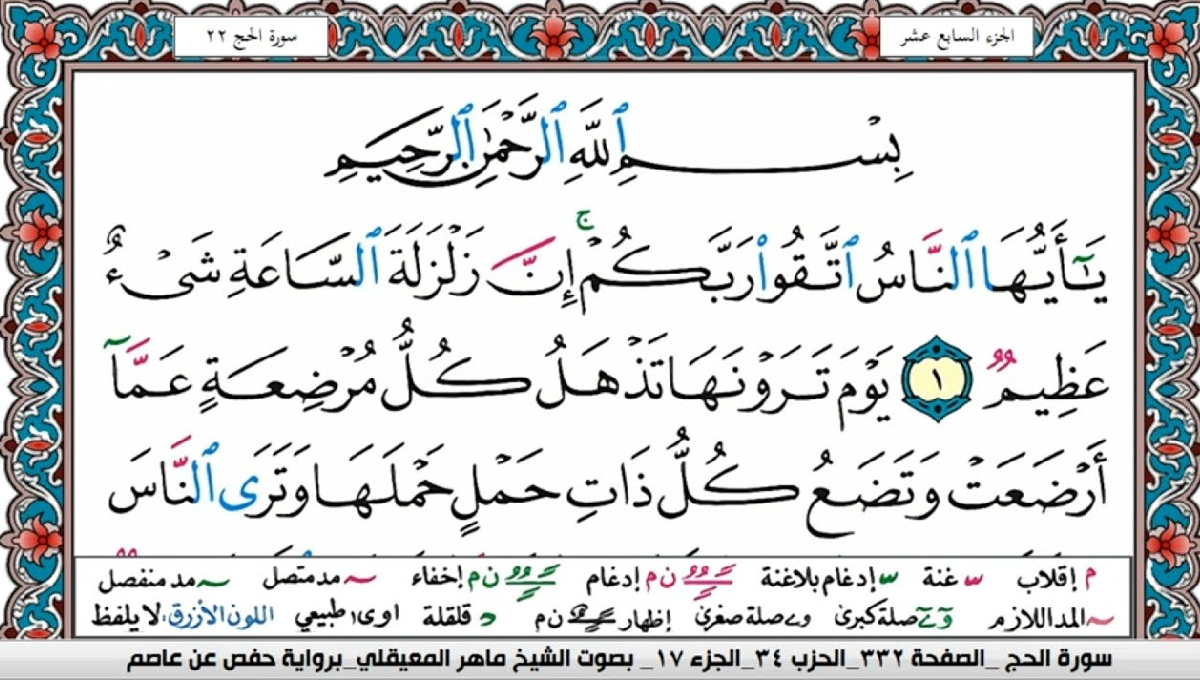 الجزء السابع عشر
سورة الحج ٢٢
بِسْمِ ٱللَّهِ ٱلرَّحْمَٰنِ ٱلرَّحِيمِ
يَٰٓأَيُّهَا ٱلنَّاسُ ٱتَّقُوا۟ رَبَّكُمْ ۚ إِنَّ زَلْزَلَةَ ٱلسَّاعَةِ شَىْءٌ
عَظِيمٌ ١ يَوْمَ تَرَوْنَهَا تَذْهَلُ كُلُّ مُرْضِعَةٍ عَمَّآ
أَرْضَعَتْ وَتَضَعُ كُلُّ ذَاتِ حَمْلٍ حَمْلَهَا وَتَرَى ٱلنَّاسَ
م إقلاب ّ غنة ادغام بلاغنة ن م إدغام ن م إخفاء ~ مد متصل ~ مد منفصل
~ المد اللازم و ے صلة كبرى و ے صلة صغرى إظهار ن م قلقلة اوى ا طبيعي اللون الأزرق: لا يلفظ
سورة الحج _الصفحة ٣٣٢_الحزب ٣٤_الجزء ١٧_ بصوت الشيخ ماهر المعيقلي_برواية حفص عن عاصم